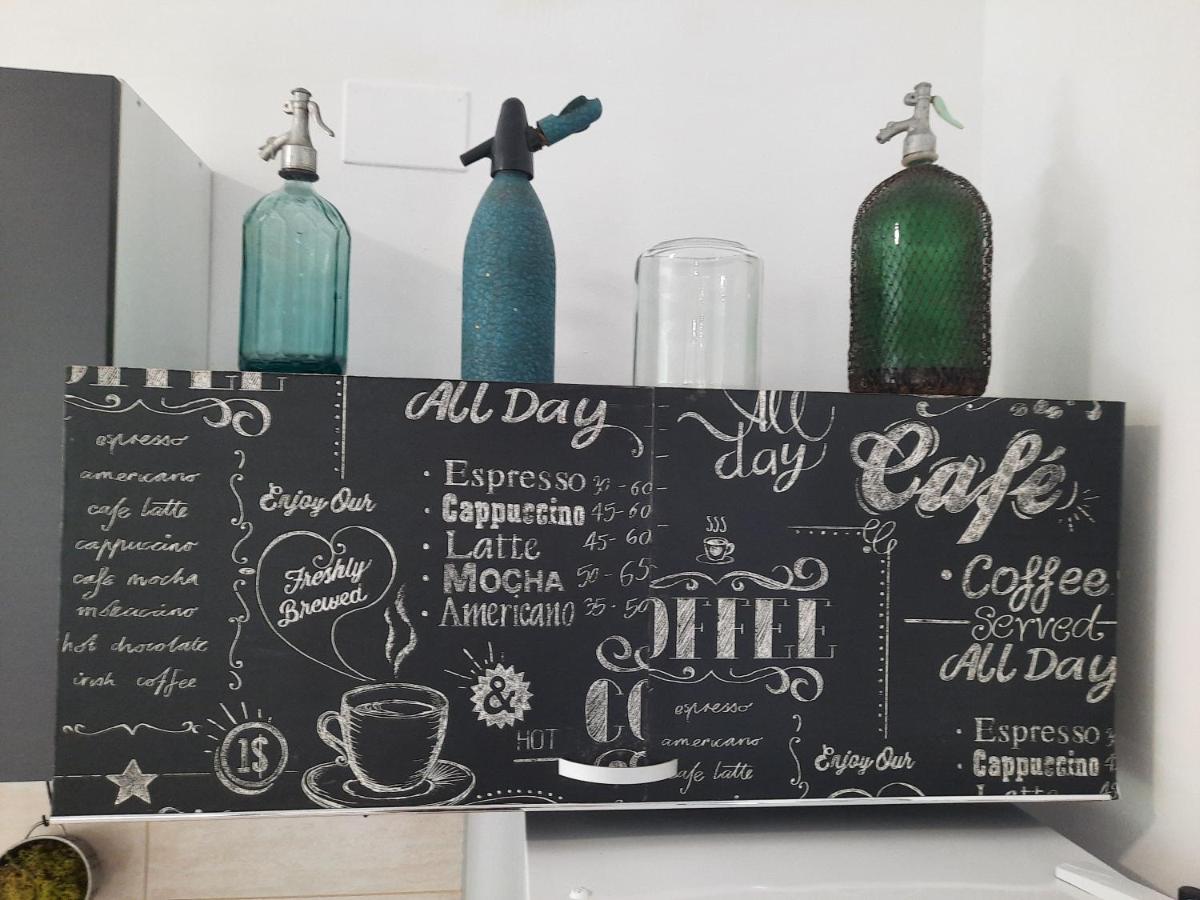 espresso
americano
cafe latte
cappuccino
cafe mocha
hot chocolate
irish coffee
1$
Enjoy Our
Freshly
Brewed
All Day
· Espresso 30-60
· Cappuccino 45-60
· Latte 45-60
· Mocha 50-65
· Americano 35-50
&
HOT
All
day
OFFEE
espresso
americano
cafe latte
Enjoy Our
Café
· Coffee
Served
All Day
· Espresso
· Cappuccino